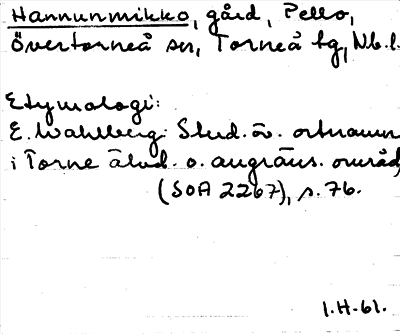 Hannunmikko, gård, Pello,
Övertorneå sn, Torneå tg, Nb. l.
Etymologi:
E. Wahlberg: Stud. öv. ortnamn
i Torne älvd. o. angräns. områd
(SOA 2267), s. 76.
I.H-61.